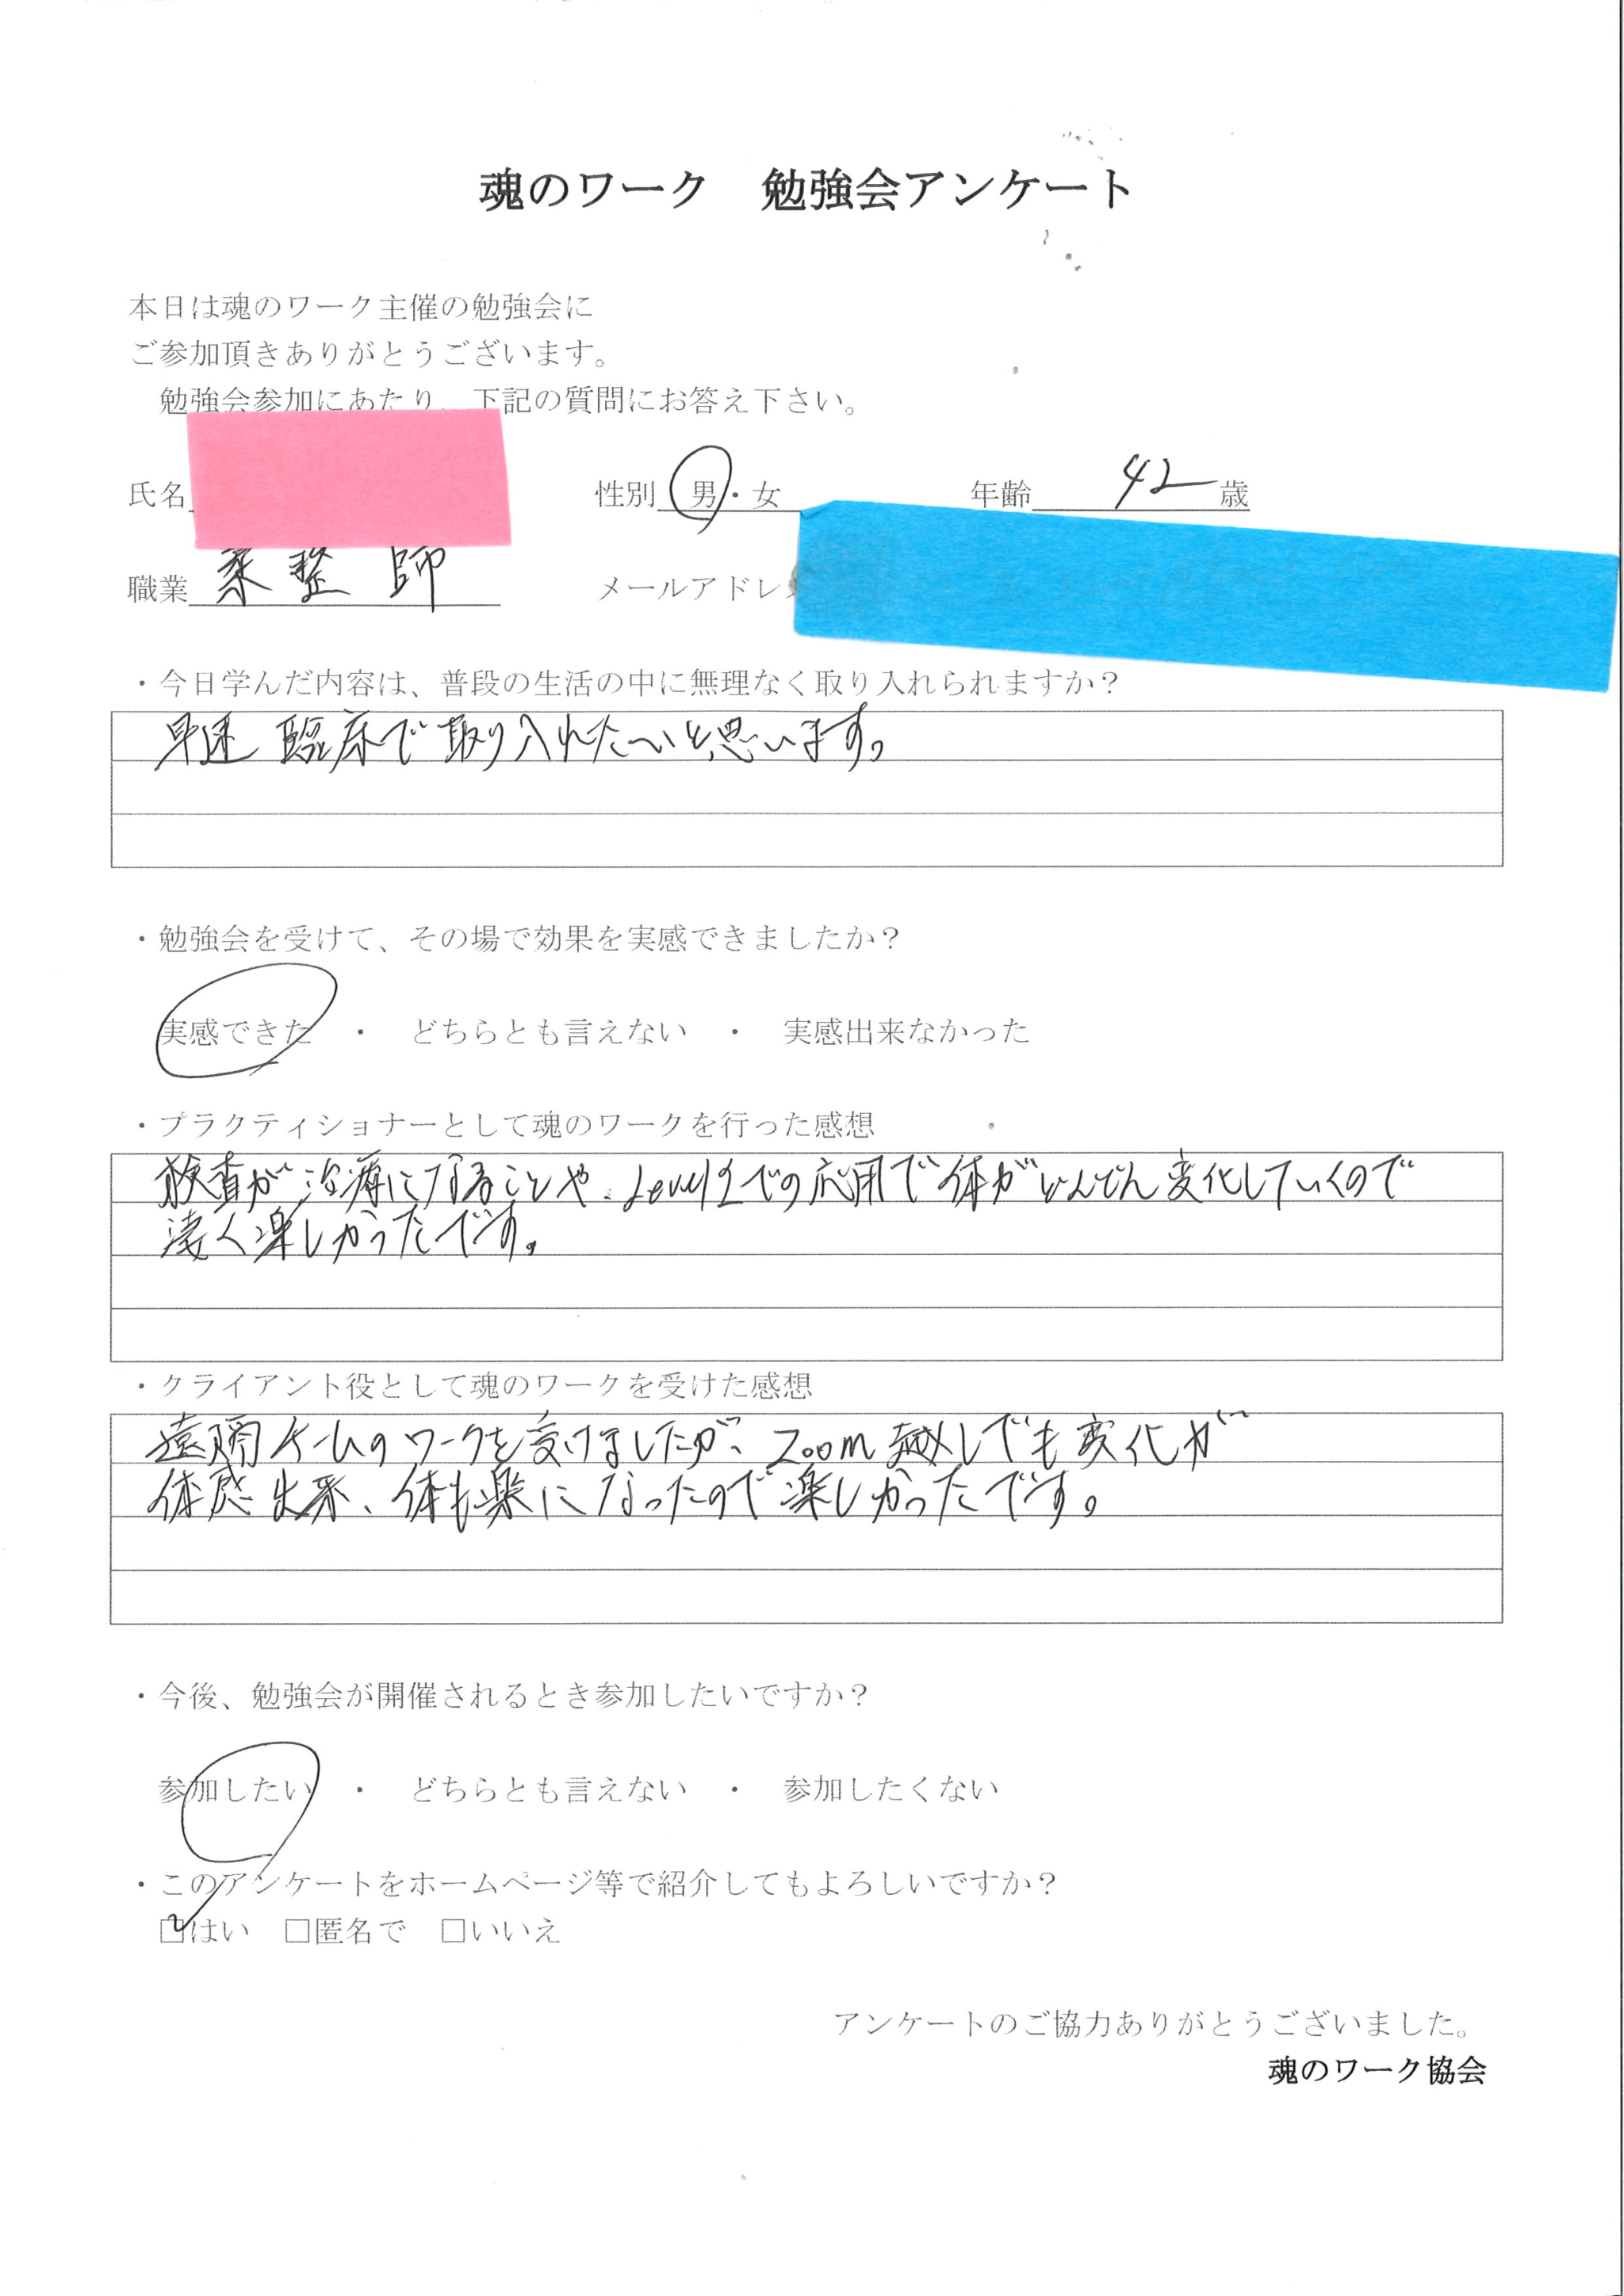 魂のワーク　勉強会アンケート
本日は魂のワーク主催の勉強会に
ご参加頂きありがとうございます。
勉強会参加にあたり、下記の質問にお答え下さい。
氏名 性別 男・女 年齢 42 歳
職業 柔整師 メールアドレ
・今日学んだ内容は、普段の生活の中に無理なく取り入れられますか？
早速臨床で取り入れたいと思います。
・勉強会を受けて、その場で効果を実感できましたか？
実感できた ・ どちらとも言えない ・ 実感出来なかった
・プラクティショナーとして魂のワークを行った感想
検査が治療になることや、Level2での応用で体がどんどん変化していくので
凄く楽しかったです。
・クライアント役として魂のワークを受けた感想
遠隔チームのワークを受けましたが、Zoom越しでも変化が
体感出来、体も楽になったので楽しかったです。
・今後、勉強会が開催されるとき参加したいですか？
参加したい ・ どちらとも言えない ・ 参加したくない
・このアンケートをホームページ等で紹介してもよろしいですか？
☑はい □匿名で □いいえ
アンケートのご協力ありがとうございました。
魂のワーク協会